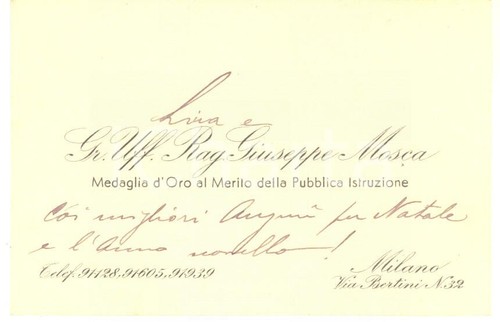 Livia e
Gr. Uff. Rag. Giuseppe Mosca
Medaglia d'Oro al Merito della Pubblica Istruzione
Coi migliori Auguri per Natale
e l'Anno novello!
Telef. 91128.91605.91939
Milano
Via Bertini N.32